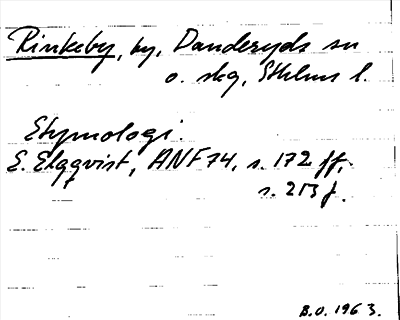 Rinkeby, by, Danderyds sn
o. skg, Sthlms l.
Etymologi.
E. Elqqvist, ANF 74, s. 172 ff,
s. 213 f.
B.O. 1963.